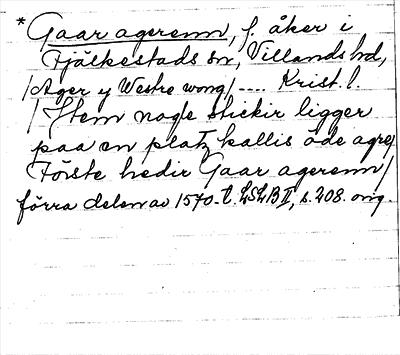 * Gaar agerenn, f. åker i
Fjälkestads sn, Villands hd,
/Ager y Westre wong/ .... Krist. l.
/Item nogle stickir ligger
paa en platz kallis öde agre/
Förste hedir Gaar agerenn/
förra delen av 1570-t. LSLB II, s. 208. orig.